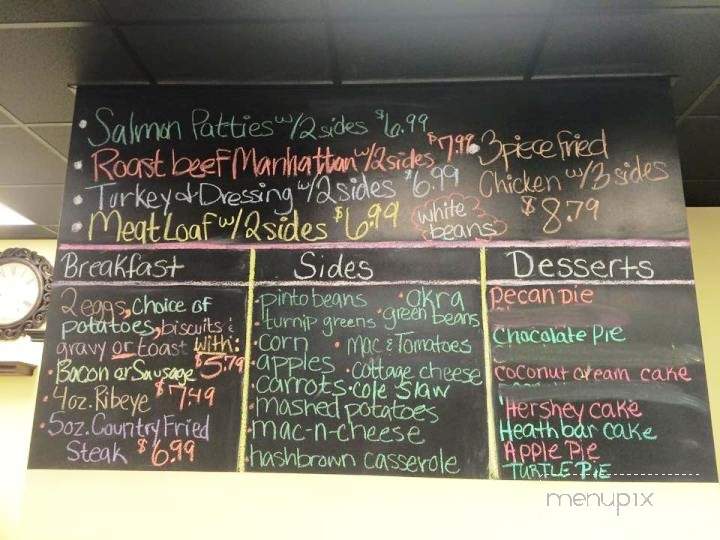 • Salmon Patties w/2 sides $6.99
• Roast beef Manhattan w/2 sides $7.99
• Turkey & Dressing w/2 sides $6.99
• Meat Loaf w/2 sides $6.99
white beans
• 3 piece fried
Chicken w/3 sides
$8.79
Breakfast
2 eggs, choice of
potatoes, biscuits &
gravy or toast with:
• Bacon or Sausage $5.79
• 4oz. Ribeye $7.49
• 5oz. Country Fried
Steak $6.99
Sides
• pinto beans • okra
• turnip greens • green beans
• corn • Mac & Tomatoes
• apples • cottage cheese
• carrots • cole slaw
• mashed potatoes
• mac-n-cheese
• hashbrown casserole
Desserts
Pecan Pie
Chocolate Pie
coconut cream cake
Hershey cake
Heath bar cake
Apple Pie
TURTLE PIE
menupix